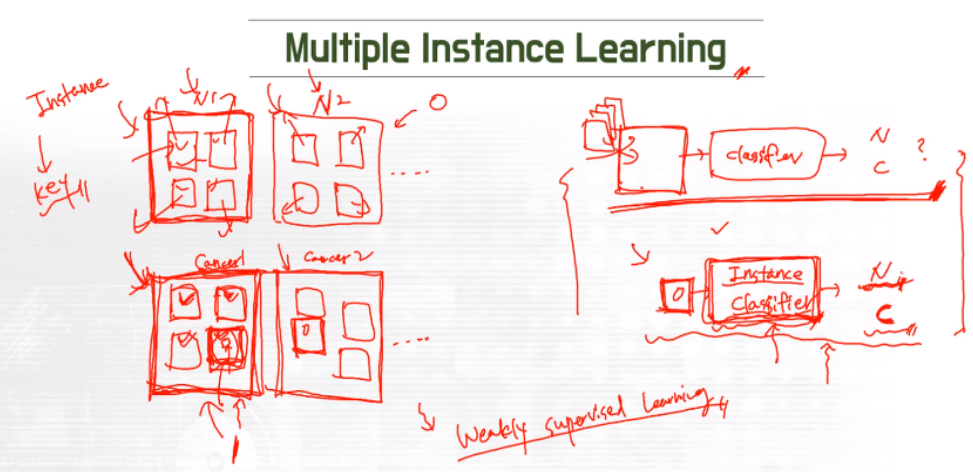 Multiple Instance Learning
Instance
N1
N2
0
key
.....
Cancer1
Cancer2
0
.....
classifier
N
C
?
0
Instance
Classifier
N
C
Weakly supervised Learning